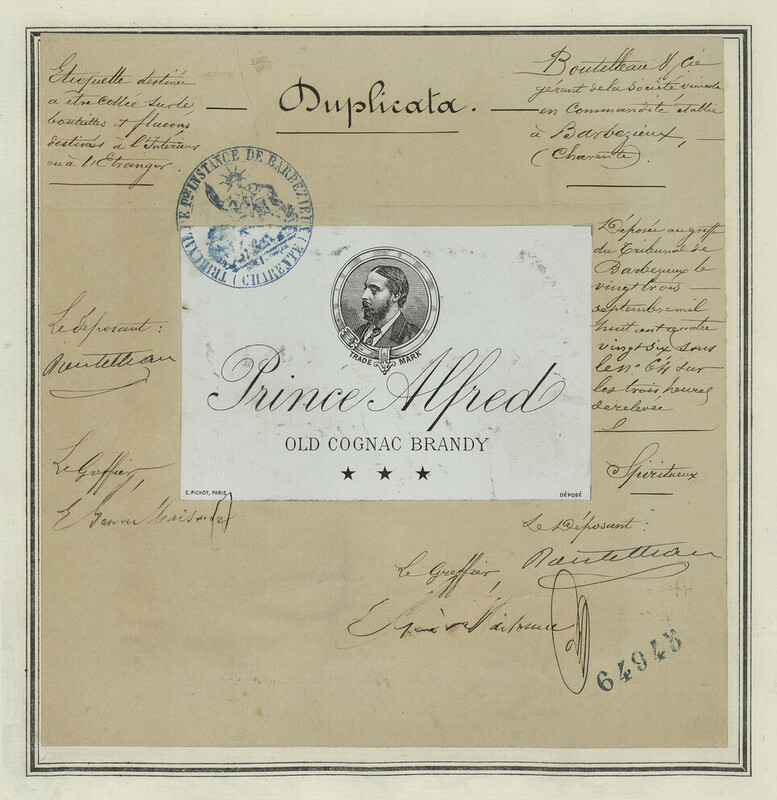 Etiquette destinée
à être collée sur les
bouteilles et flacons
destinés à l'Intérieur
ou à l'Etranger.
Duplicata.
Boutelleau & Cie
gérant de la Société vinicole
en Commandite établie
à Barbezieux,
(Charente).
TRIBUNAL DE 1ère INSTANCE DE BARBEZIEUX
(CHARENTE)
TRADE MARK
Prince Alfred
OLD COGNAC BRANDY
E. PICHOT, PARIS.
DÉPOSÉ
Déposée au greffe
du Tribunal de
Barbezieux le
vingt trois
septembre mil
huit cent quatre
vingt six sous
le n° 64 sur
les trois heures
de relevée
Spiritueux
Le déposant :
Boutelleau
Le Greffier,
Le Déposant :
Boutelleau
Le Greffier,
64943